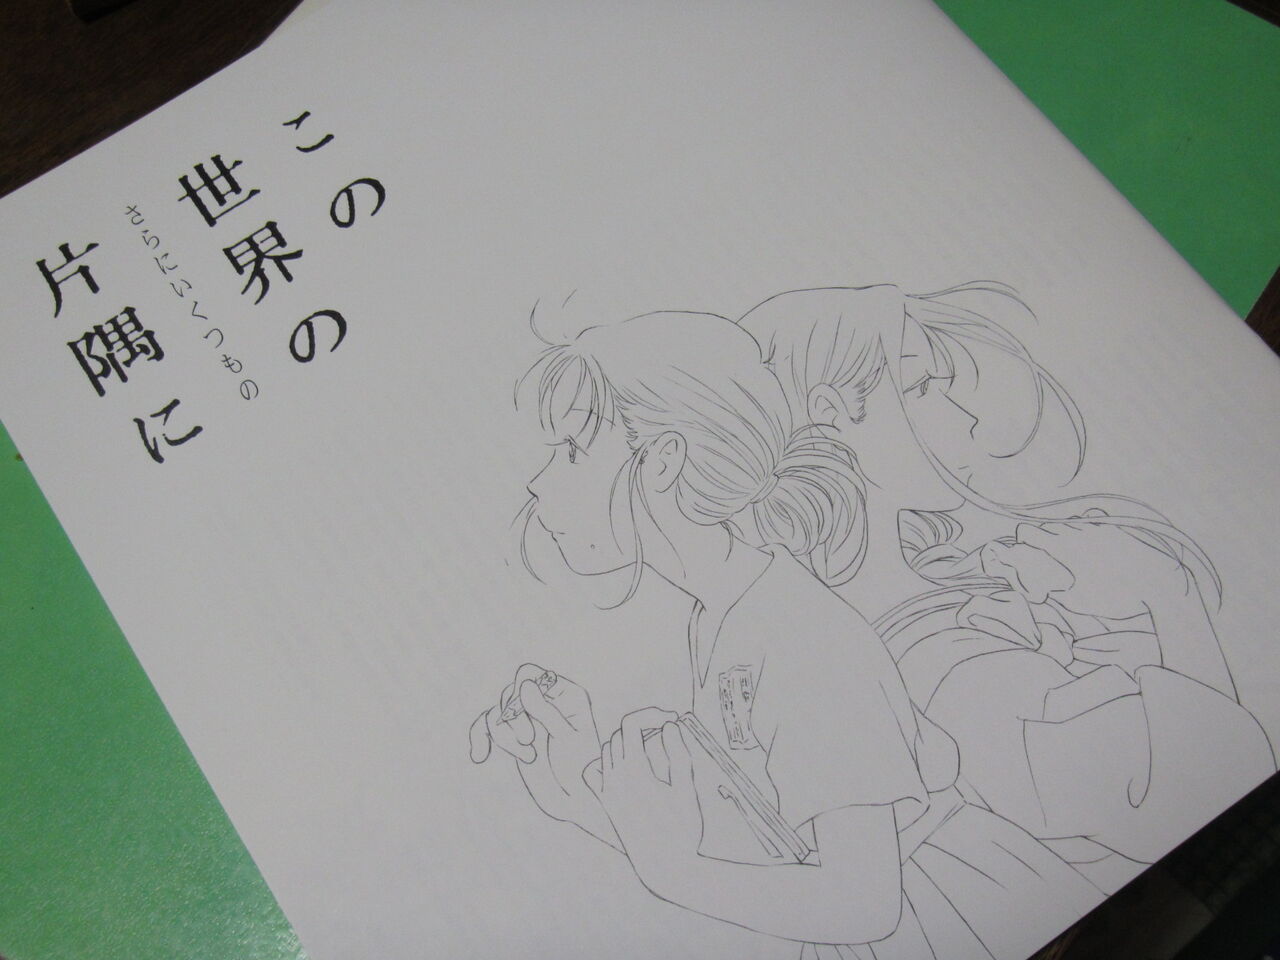 この
世界の
さらにいくつもの
片隅に